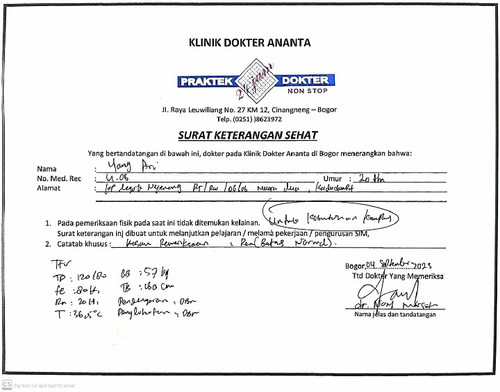 KLINIK DOKTER ANANTA
PRAKTEK 24 jam DOKTER
NON STOP
Jl. Raya Leuwiliang No. 27 KM 12, Cinangneng – Bogor
Telp. (0251) )8623972
SURAT KETERANGAN SEHAT
Yang bertandatangan di bawah ini, dokter pada Klinik Dokter Ananta di Bogor menerangkan bahwa:
Nama : Yang Ari
No. Med. Rec : Umur : 20 thn
Alamat : RT/RW /06/06
1. Pada pemeriksaan fisik pada saat ini tidak ditemukan kelainan. Untuk
Surat keterangan ini dibuat untuk melanjutkan pelajaran / melama pekerjaan / pengurusan SIM,
2. Catatab khusus : Pemeriksaan : Batas Normal).
TTV
TD : 120/80 BB : 57 kg
: 80 x/i TB : 160 cm
: 20 x/i Pendengaran : DBN
T : 36,5°C Penglihatan : DBN
Bogor, 04 September 2023
Ttd Dokter Yang Memeriksa
dr.
Nama jelas dan tandatangan
CS